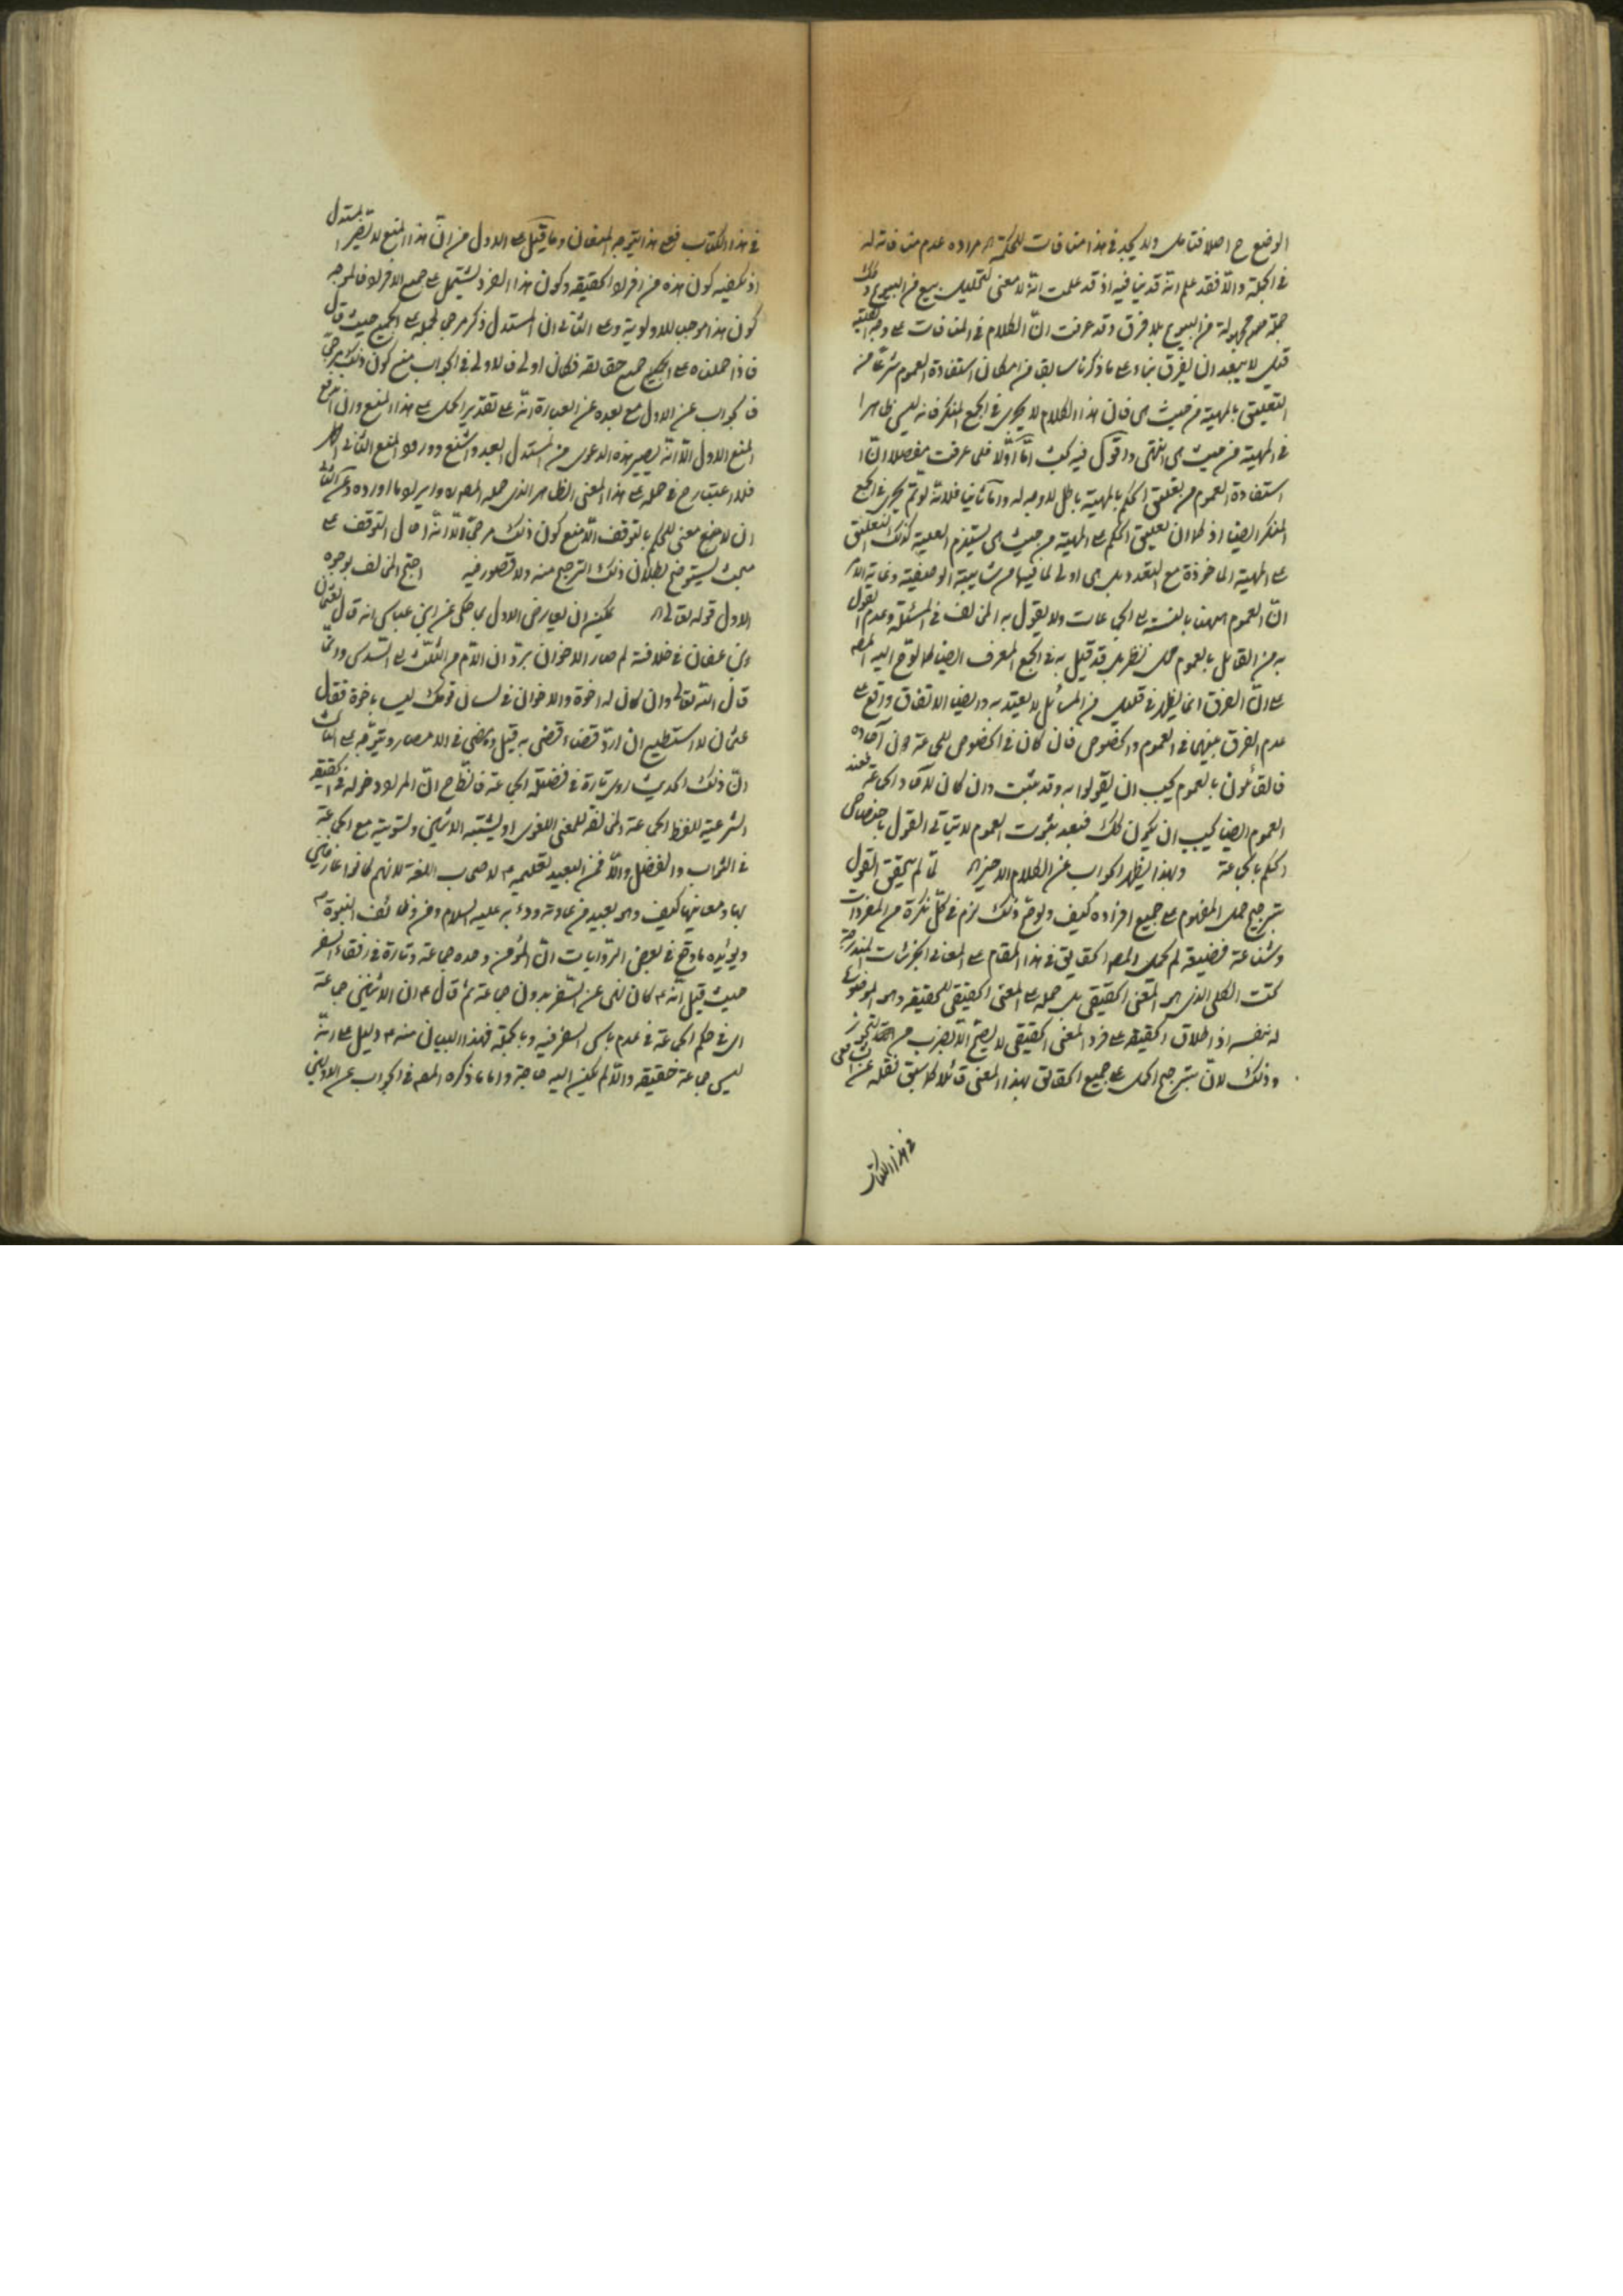 الوضع ح اصلا فتامل ولا يجد فى هذا منافات للحكمة مراده عدم منافاته له
فى الجملة والا فقد علم انه قد ينافيه اذ قد علمت انه لا معنى لتحليل بيع من البيوع
جملة مجهولة من البيوع بلا فرق وقد عرفت ان الكلام فى المنافات على وجه
قيل لا يبعد ان يفرق بناء على ما ذكرنا سابقا من امكان استفادة العموم شرعا من
التعليق بالمهية من حيث هى فان هذا الكلام لا يجرى فى الجمع المنكر فانه ليس ظاهرا
فى المهية من حيث هى انتهى واقول فيه بحث اما اولا فلما عرفت مفصلا ان
استفادة العموم من تعليق الحكم بالمهية باطل لا وجه له واما ثانيا فلانه لو تم يجرى فى الجمع
المنكر ايضا اذ كما ان تعليق الحكم على المهية من حيث هى يستلزم العلية كذلك التعليق
على المهية الماخوذة مع التعدد بل هى اولى لما فيها من شايبة الوصفية وغاية الامر
ان العموم ههنا بالنسبة الى الجماعات ولا يقول به المخالف فى المسئلة وعدم القول
به من القائل بالعموم محل نظر بل قد قيل به فى الجمع المعرف ايضا كما لوح اليه المصه
على ان الفرق انما يظهر فى قليل من المسائل لا يعتد به وايضا الاتفاق واقع على
عدم الفرق بينهما فى العموم والخصوص فان كان فى الخصوص للجماعة دون آحاده
فالقائلون بالعموم يجب ان يقولوا به وقد يثبت وان كان للآحاد والجماعة فعند
العموم ايضا يجب ان يكون كذلك فبعد ثبوت العموم لا يتاتى القول باختصاص
الحكم بالجماعة وبهذا يظهر الجواب عن الكلام الاخير لما لم يتحقق القول
بترجيح حمل المفهوم على جميع افراده كيف ولو صح ذلك لزم فى كل نكرة من المفردات
وشناعته فضيعة لم يحمل المصه الحقايق فى هذا المقام على المعانى الجزئيات المندرجة
تحت الكلى الذى هو المعنى الحقيقى بل حمله على المعنى الحقيقى للحقيقة وهو الموضوع
له بنفسه اذ اطلاق الحقيقة على فرد المعنى الحقيقى لا يصح الا بضرب من التجوز
وذلك لان بترجيح الحمل على جميع الحقائق بهذا المعنى قائلا كما سبق نقله عن الشافعى
فى هذا الكتاب
فى هذا الكتاب فعلى هذا يتوجه المنعان وما قيل على الاول من ان هذا المنع لا يضر المستدل
اذ يكفيه كون هذه من افراد الحقيقة وكون هذا الفرد يشتمل على جميع الافراد فالموجه
كون هذا موجب للاولوية وعلى الثانى ان المستدل ذكر مرجح لحمله على الجميع حيث قال
فاذا حملناه على الجميع جميع حقائقه فكان اولى فالاولى فى الجواب منع كون ذلك مرجحا
فالجواب عن الاول مع بعده عن العبارة انه على تقدير الحمل على هذا المنع وان اندفع
المنع الاول الا انه يصير هذه الدعوى من المستدل ابعد واشنع وورود المنع الثانى اظهر
فلا اعتبار ح فى حمله على هذا المعنى الظاهر الذى حمله المصه وايراد ما اورده وعن الثانى
ان لا منع معنى للحكم بالتوقف الا منع كون ذلك مرجحا الا انه احال التوقف على
مبحث ليستوضح بطلان ذلك الترجيح منه ولا قصور فيه احتج المخالف بوجوه
الاول قوله تعالى يمكن ان يعارض الاول بما حكى عن ابن عباس انه قال لعثمان
بن عفان فى خلافته لم صار الاخوان يرد ان الام من الثلث الى السدس وانما
قال الله تعالى وان كان له اخوة والاخوان فى لسان قومك ليسا باخوة فقال
عثمان لا استطيع ان ارد قضاء قضى به قبلى ومضى فى الامصار ويتوجه على الثالث
ان ذلك الحديث اورد تارة فى فضيلة الجماعة فالظاهر ان المراد دخوله فى الحقيقة
الشرعية للفظ الجماعة والمخالفة للمعنى اللغوى او يشبه الاثنين وتسويته مع الجماعة
فى الثواب والفضل والا فمن البعيد تعليمه لاصحاب اللغة لانهم كانوا عارفين
بها ومعانيها كيف وهو بعيد من عادته ودأبه عليه السلام ومن وظائف النبوة
ويؤيده ما وقع فى بعض الروايات ان المؤمن وحده جماعة وتارة فى رفقاء السفر
حيث قيل انه كان نهى عن السفر بدون جماعة ثم قال ان الاثنين جماعة
اى فى حكم الجماعة فى عدم باس السفر فيه وبالجملة فهذا البيان منه دليل على انه
ليس جماعة حقيقة والا لم يكن اليه حاجة واما ما ذكره المصه فى الجواب عن الاولين